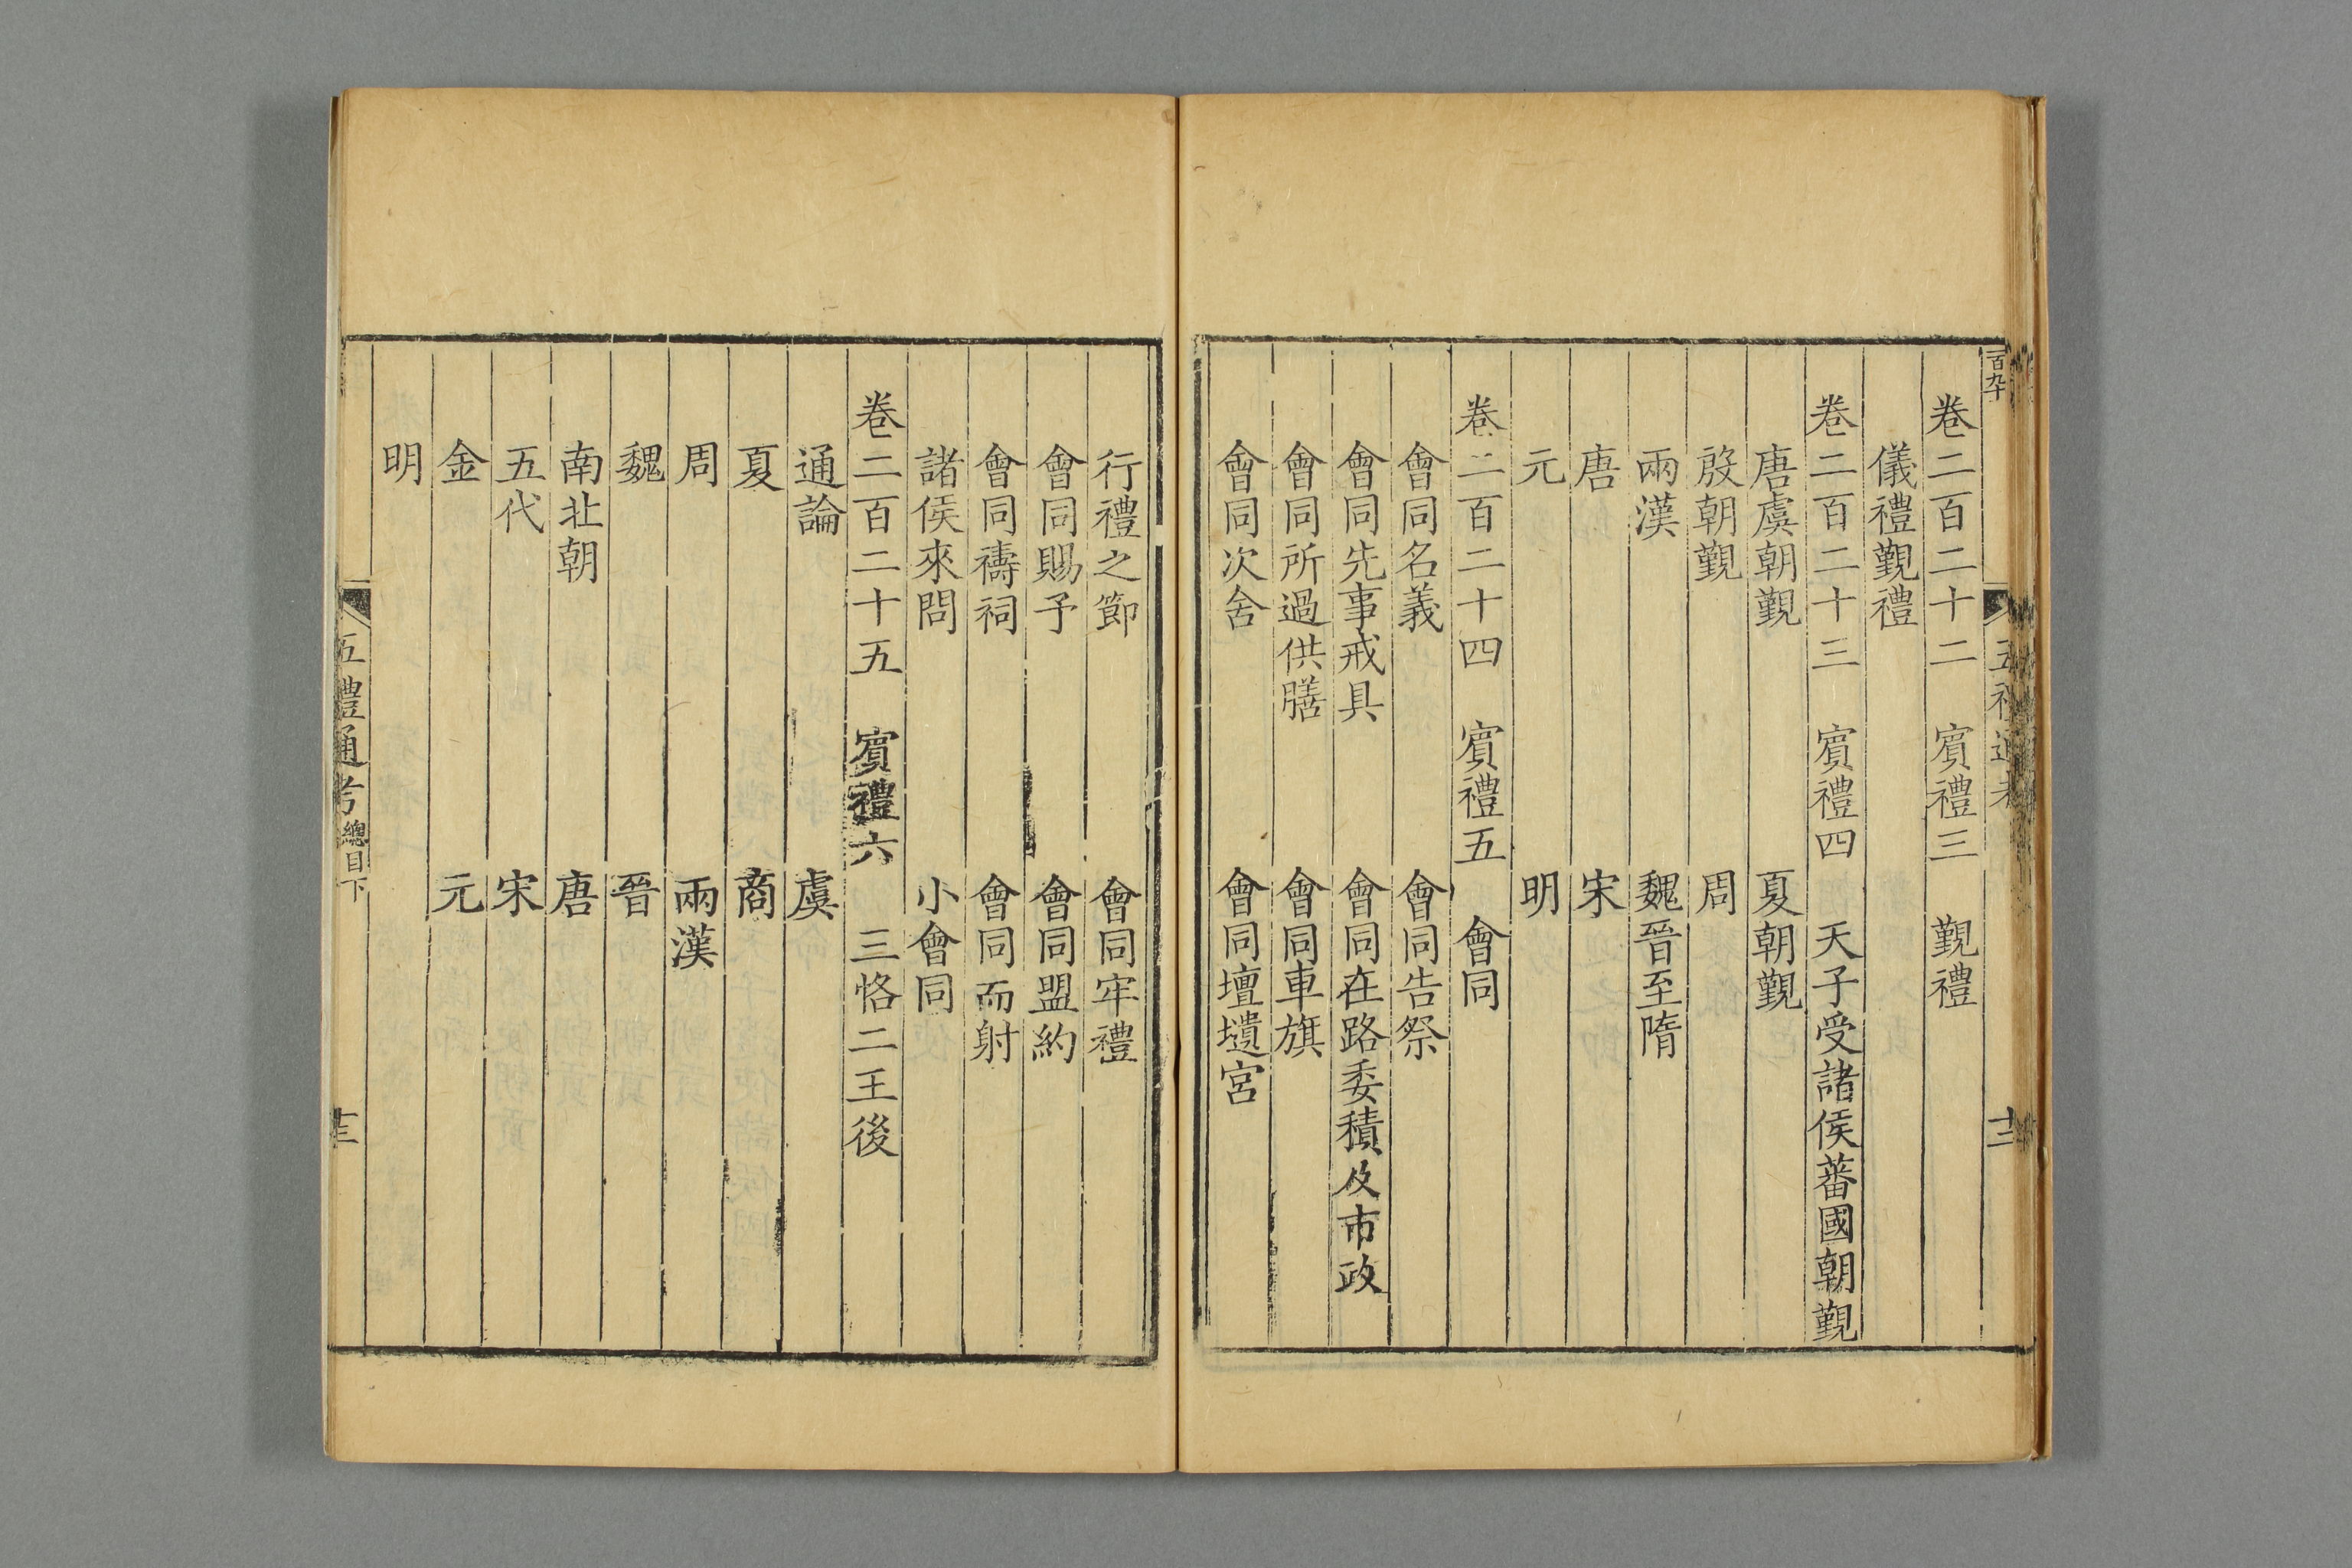 卷二百二十二　賓禮三　覲禮
儀禮覲禮
卷二百二十三　賓禮四　天子受諸侯蕃國朝覲
唐虞朝覲　夏朝覲
殷朝覲　周
兩漢　魏晉至隋
唐　宋
元　明
卷二百二十四　賓禮五　會同
會同名義　會同告祭
會同先事戒具　會同在路委積及市政
會同所過供膳　會同車旗
會同次舍　會同壇壝宮
行禮之節　會同牢禮
會同賜予　會同盟約
會同禱祠　會同而射
諸侯來問　小會同
卷二百二十五　賓禮六　三恪二王後
通論　虞
夏　商
周　兩漢
魏　晉
南北朝　唐
五代　宋
金　元
明
五禮通考總目下　十三